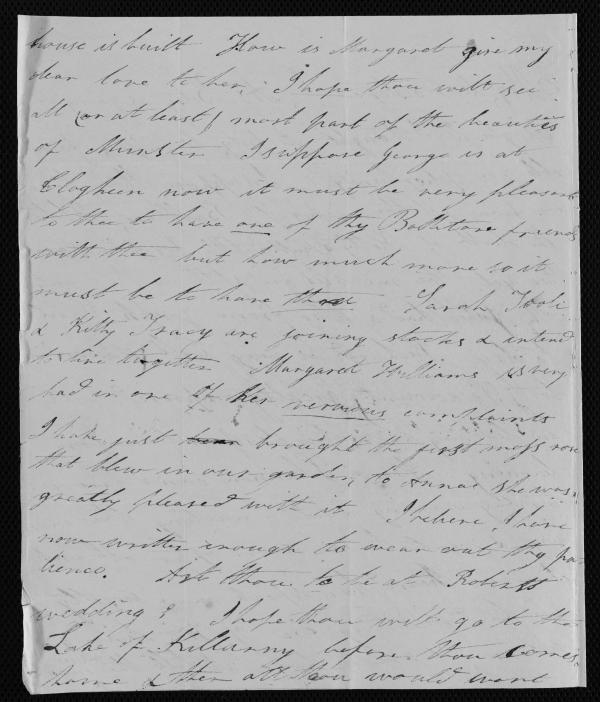 house is built How is Margaret give my
dear love to her, I hope thou wilt see
all (or at least) most part of the beauties
of Munster I suppose George is at
Clogheen now it must be very pleasant
to thee to have one of thy Ballitore friends
with thee but how much more so it
must be to have three Sarah
& Kitty Tracy are joining stocks & intend
to live together Margaret Williams is very
bad in one of her nervous complaints
I have just been brought the first moss rose
that blew in our garden, to Anna she was
greatly pleased with it I believe I have
now written enough to wear out thy pa
tience. Art thou to be at Roberts
wedding? I hope thou wilt go to the
Lake of Killarny before thou comes
home & then all thou would want